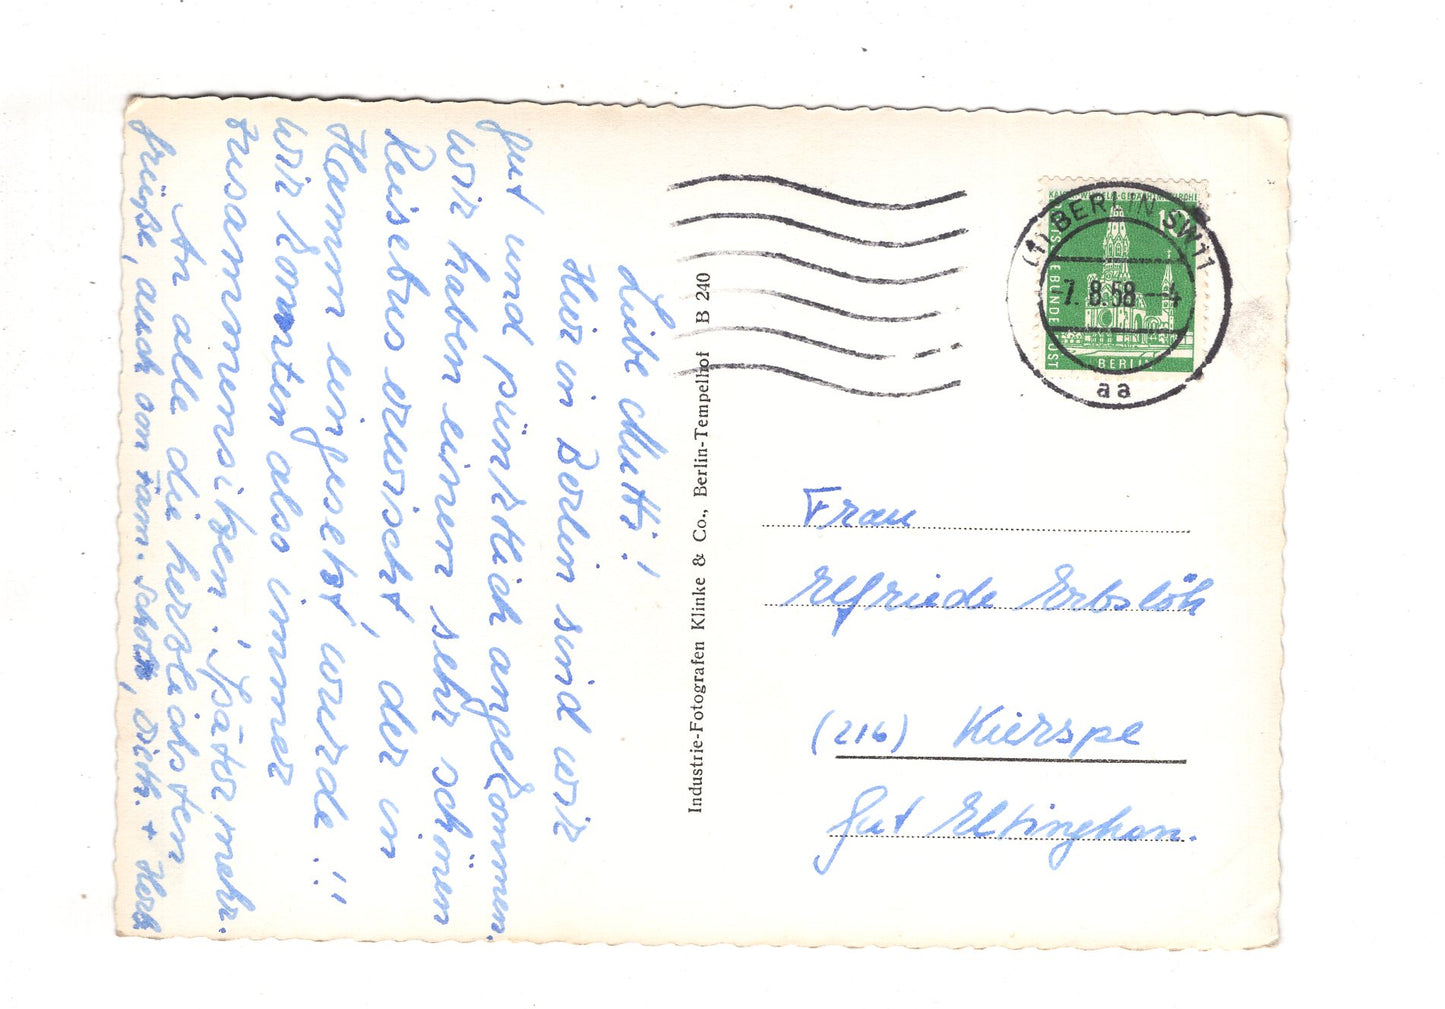 Liebe Mutti!
Hier in Berlin sind wir
gut und pünktlich angekommen.
Wir haben einen sehr schönen
Reisebus erwischt, der in
Hamm eingesetzt wurde!!
Wir konnten also immer
zusammensitzen! Später mehr.
An alle die herzlichsten
Grüße, auch von Fam. Scholz, Dieth. + Herb
Industrie-Fotografen Klinke & Co., Berlin-Tempelhof B 240
10
DEUTSCHE BUNDESPOST
BERLIN
(1) BERLIN SW11
-7.8.58--4
aa
Frau
Elfriede Erbslöh
(216) Kierspe
Gut Eltinghsn.